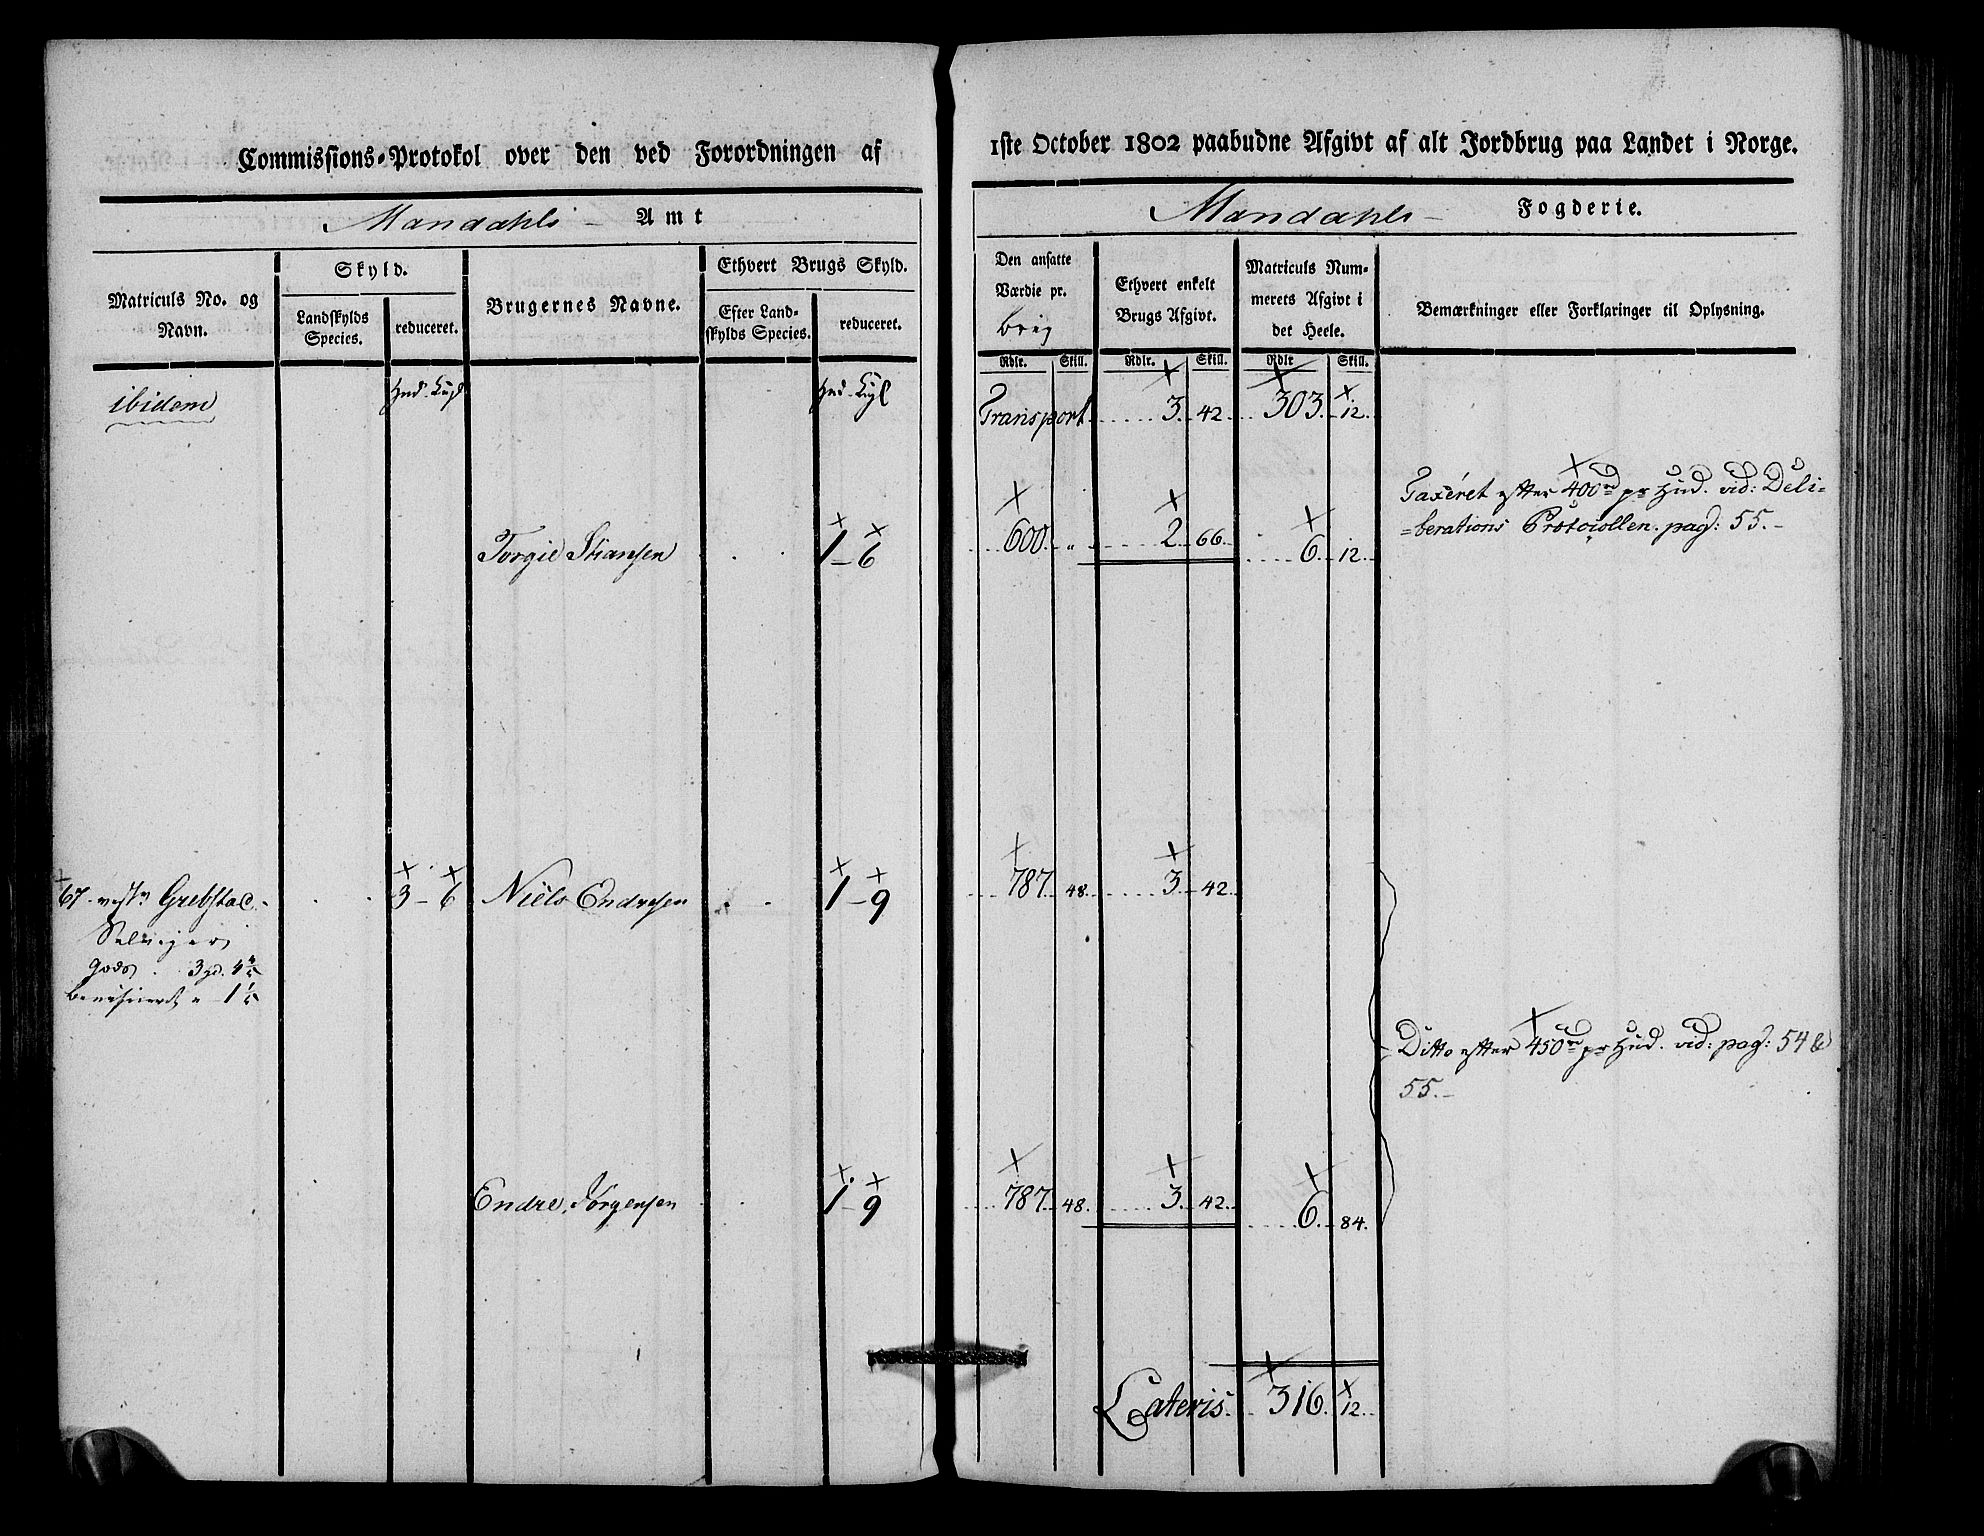 Commissions-Protokol over den ved Forordningen af
Mandahls Amt
Matriculs No. og Navn.
Skyld.
Landskylds Species.
reduceret.
Brugernes Navne.
Ethvert Brugs Skyld.
Efter Landskylds Species.
reduceret.
ibidem
Torgie Stiansen 1-6
67. Grebstad 3-6 Niels Endresen 1-9
Selvejer
gods
Endre Jörgensen 1-9
1ste October 1802 paabudne Afgivt af alt Jordbrug paa Landet i Norge.
Mandahls Fogderie.
Den ansatte Værdie pr.
Ethvert enkelt Brugs Afgivt.
Matriculs Nummerets Afgivt i det Heele.
Bemærkninger eller Forklaringer til Oplysning.
Rdlr. Skill. Rdlr. Skill. Rdlr Skill.
Transport 3. 42. 303. 12.
Taxéret efter 400 rd pr Hud. vid: Deli=
=berations Protocollen. pag: 55.-
600. " 2. 66. 6. 12.
787. 48. 3. 42.
Ditto efter 450 rd pr Hud. vid: pag: 54 &
55.-
787. 48. 3. 42. 6. 84.
Lateris. 316. 12.